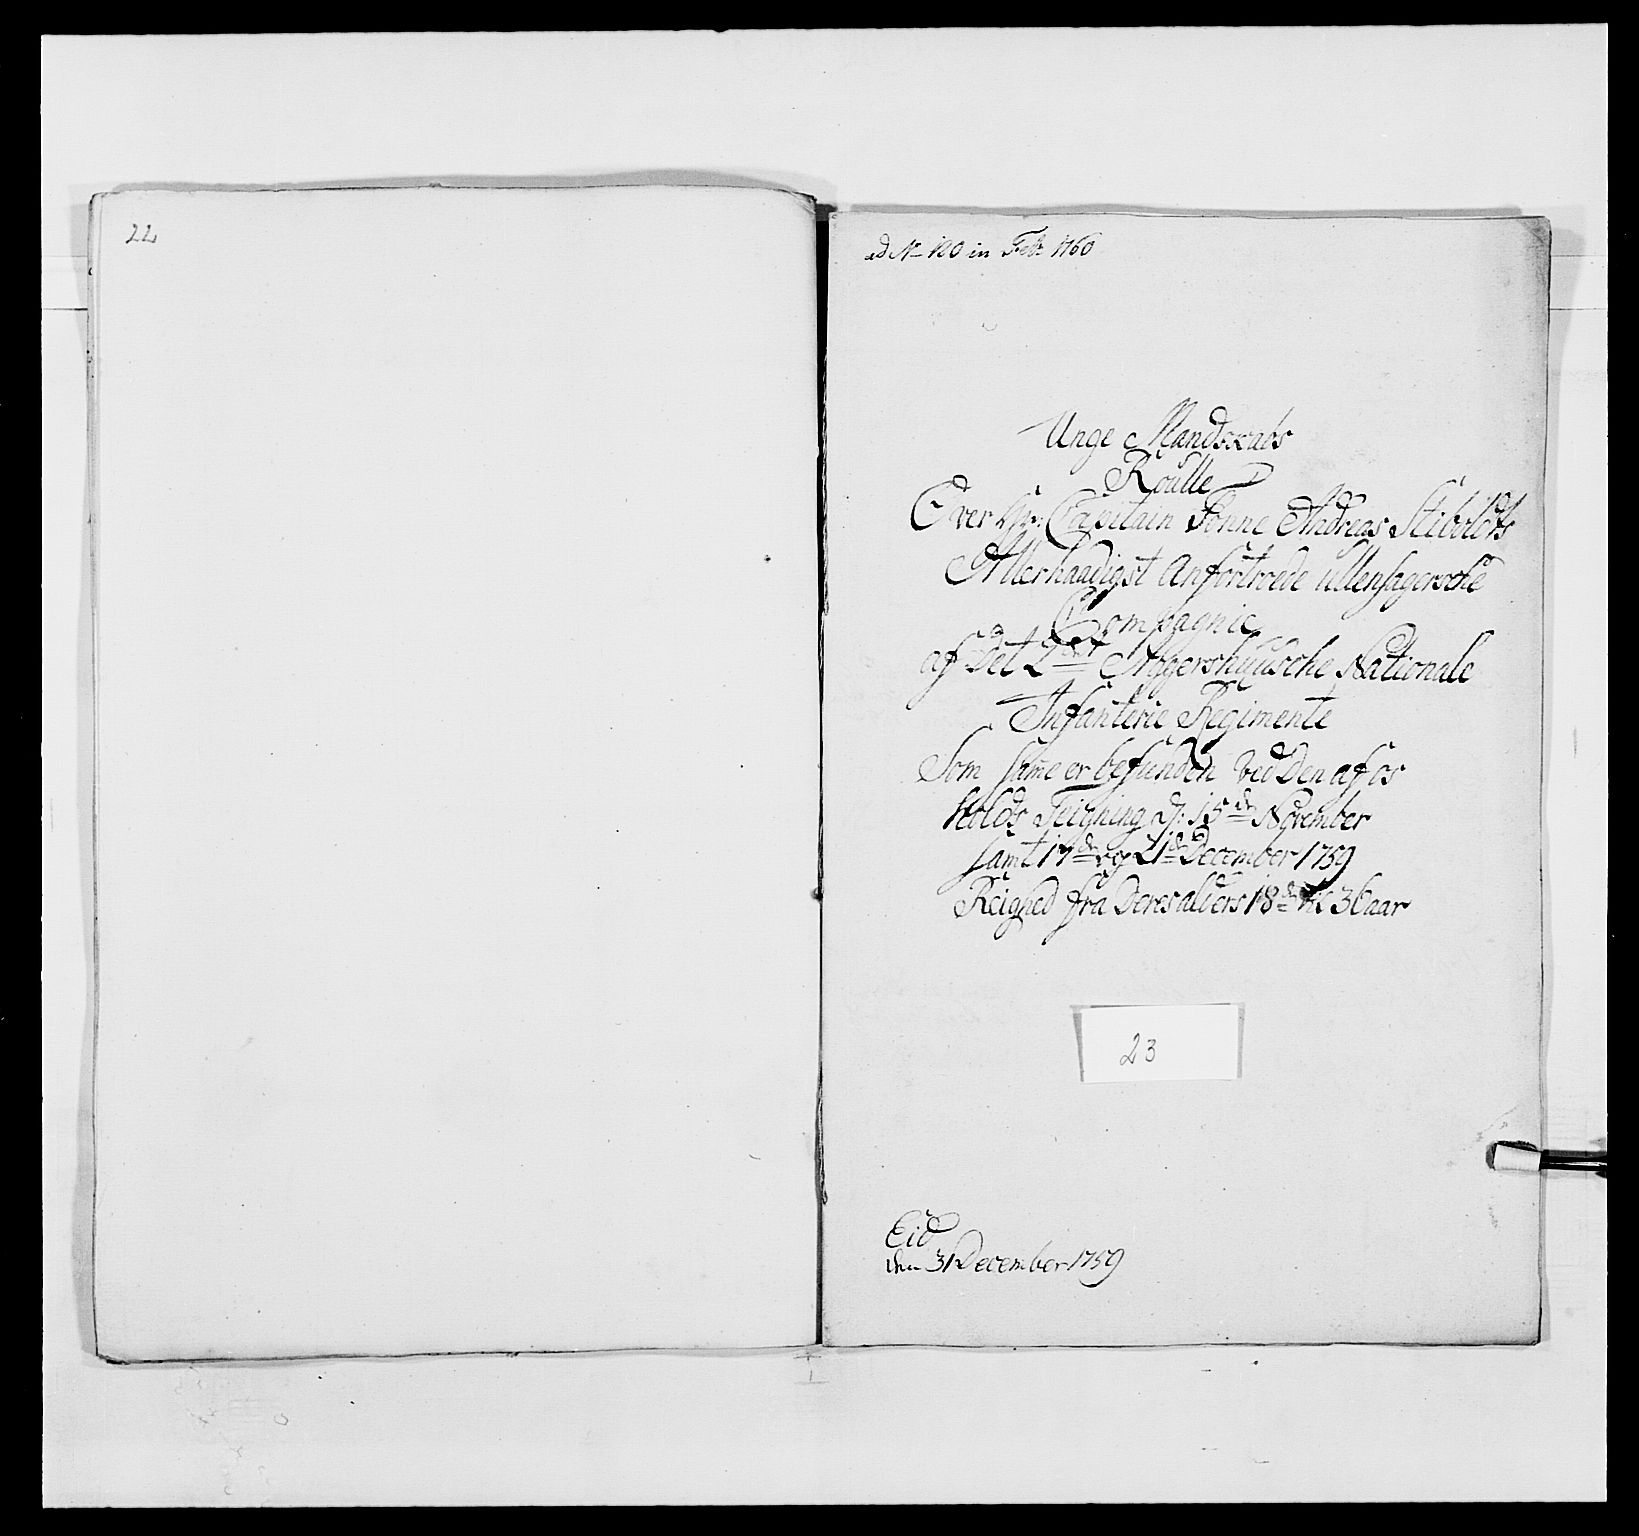 22
ad No 120 in Febr 1760
Unge Mandskabs
Roulle
Over Hr: Capitain Tonne Andreas Stibolds
Allernaadigst Anfortroede ullensagersche
Compagnie
af Det 2det Aggershuusche Nationale
Infanterie Regimente
Som same er befunden ved Den af os
holds Teigning d: 15de November
samt 17de og 21de December 1759
Reighed fra Deres alders 18de til 36 aar
23
Eid
den 31 December 1759